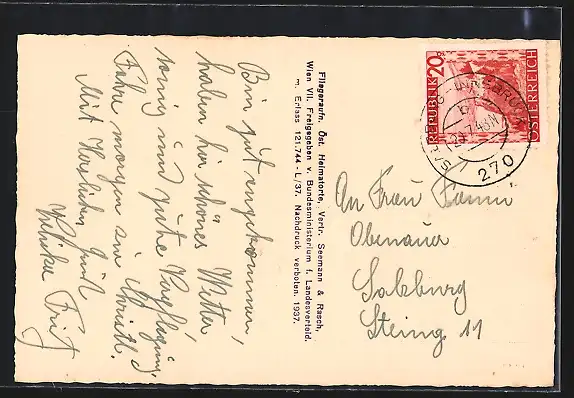 Bin gut angekommen,
haben hier schönes Wetter
wenig und gute Verpflegung,
Fahre morgen
Mit Herzlichen Gruß
Fritz
Fliegeraufn. Öst. Heimatorte. Vertr. Seemann & Rasch,
Wien VII. Freigegeben v. Bundesministerium f. Landesverteid.
m. Erlass 121.744-L/37. Nachdruck verboten. 1937.
REPUBLIK 20g
ÖSTERREICH
270
An Frau
Obenauer
Salzburg
Steing. 11